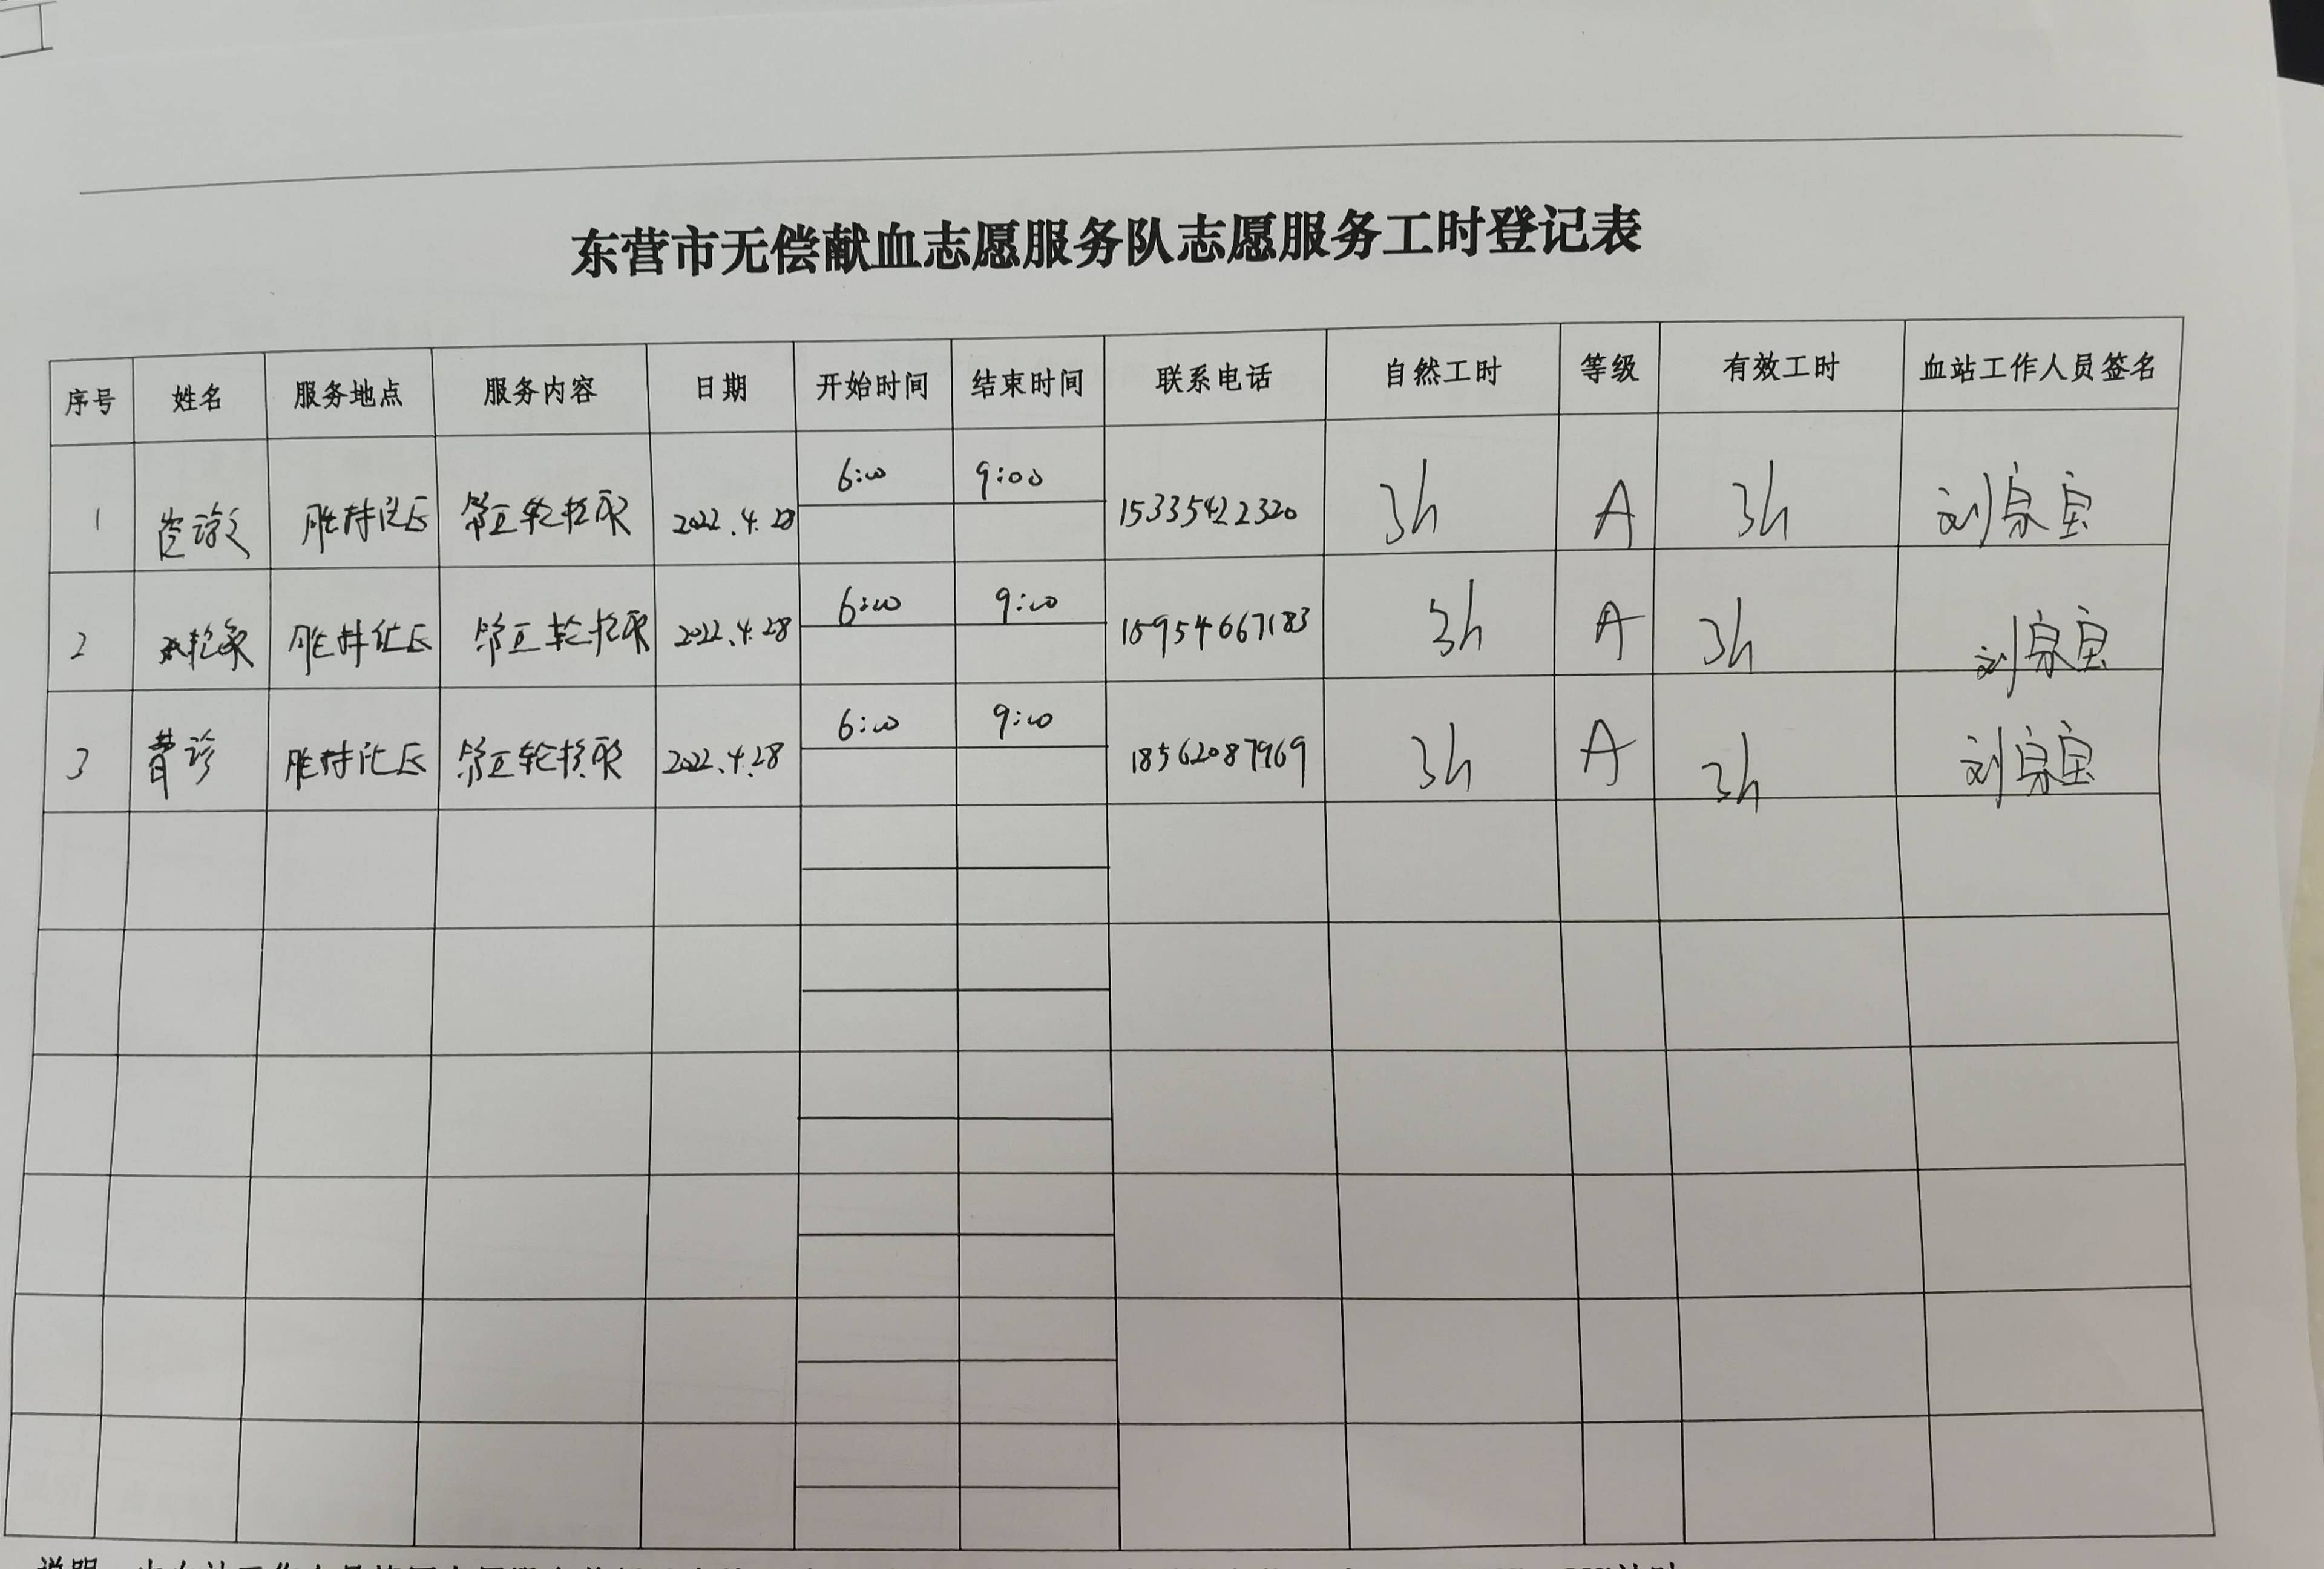 东营市无偿献血志愿服务队志愿服务工时登记表
序号 姓名 服务地点 服务内容 日期 开始时间 结束时间 联系电话 自然工时 等级 有效工时 血站工作人员签名
1 胜利社区 第五轮核酸 2022.4.28 6:00 9:00 15335422320 3h A 3h 刘泉宝
2 胜利社区 第五轮核酸 2022.4.28 6:00 9:00 15954667183 3h A 3h 刘泉宝
3 胜利社区 第五轮核酸 2022.4.28 6:00 9:00 18562087969 3h A 3h 刘泉宝